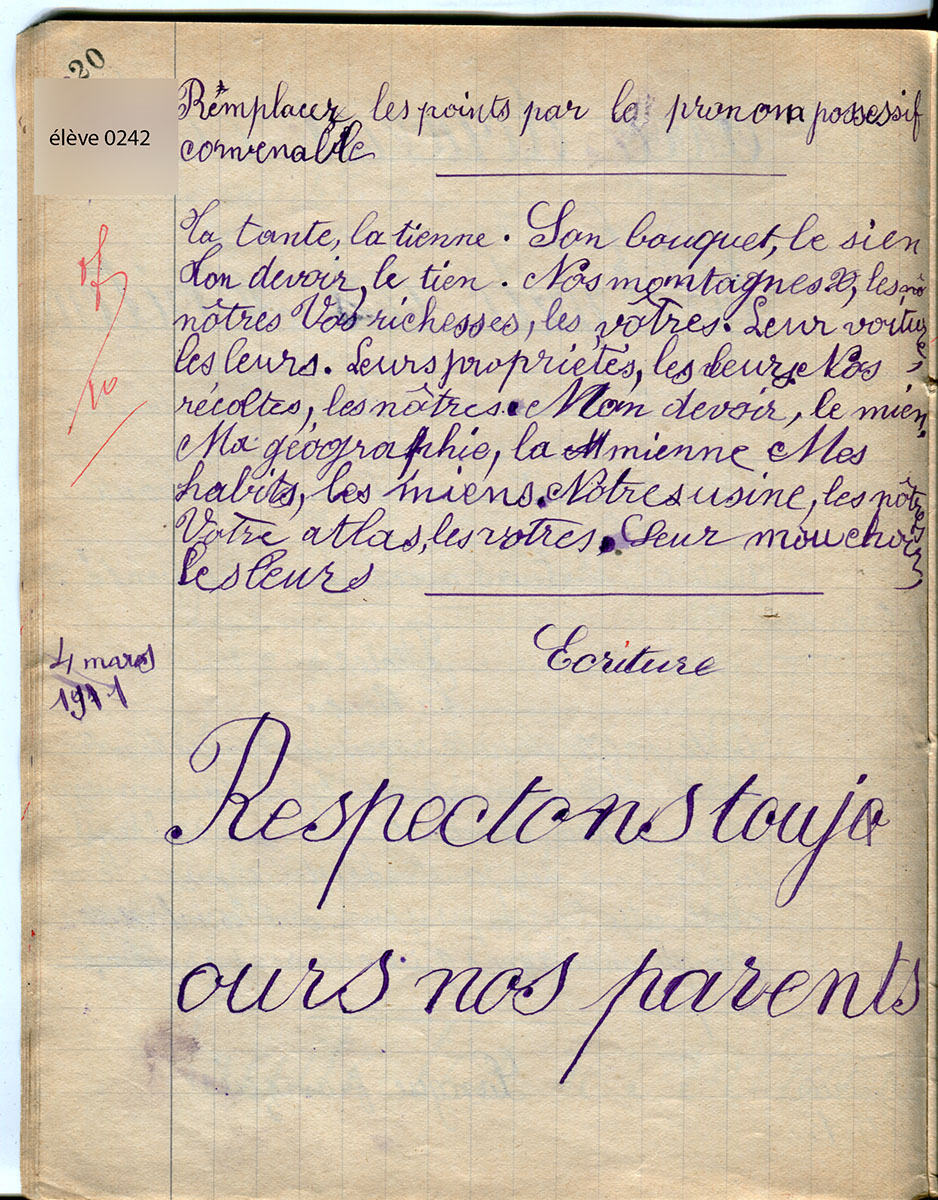 20
élève 0242
Remplacer les points par le pronom possessif
convenable
Ta tante, la tienne. Son bouquet, le sien
Ton devoir, le tien. Nos montagnes, les
nôtres Vos richesses, les vôtres. Leur voiture,
les leurs. Leurs propriétés, les leurs Nos
récoltes, les nôtres. Mon devoir, le mien.
Ma géographie, la mienne Mes
habits, les miens. Notre usine, les nôtres
Votre atlas, les votres. Leur mouchoir,
les leurs
4 mars
1911
Ecriture
Respectons toujo
ours nos parents